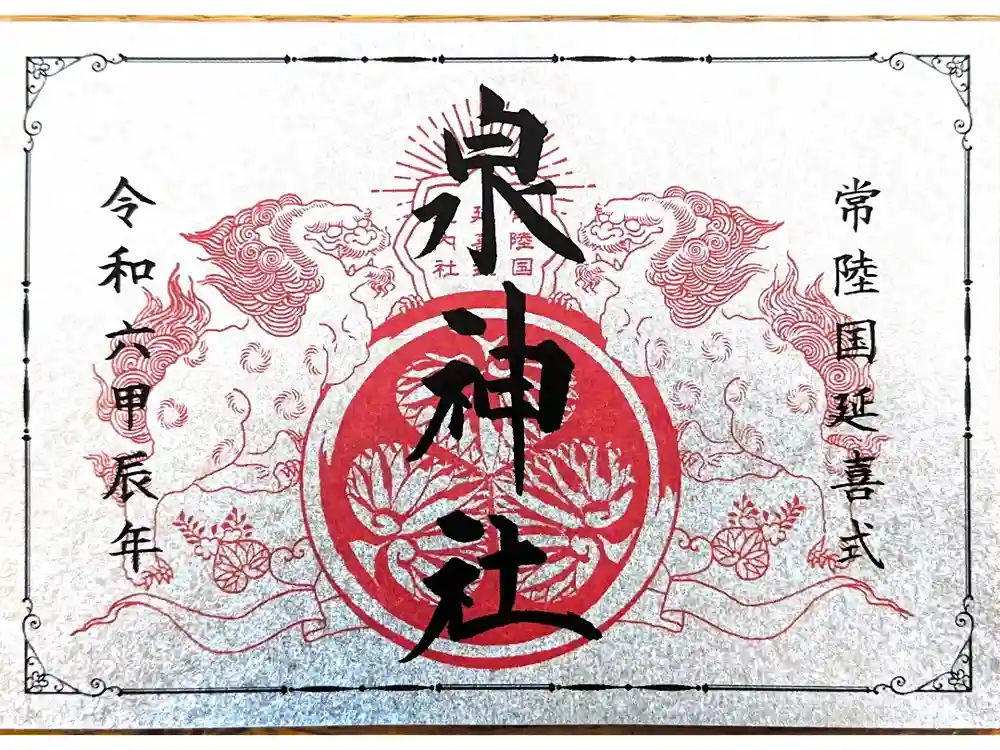 常陸国延喜式
泉神社
令和六甲辰年
常陸国
延喜式
内社